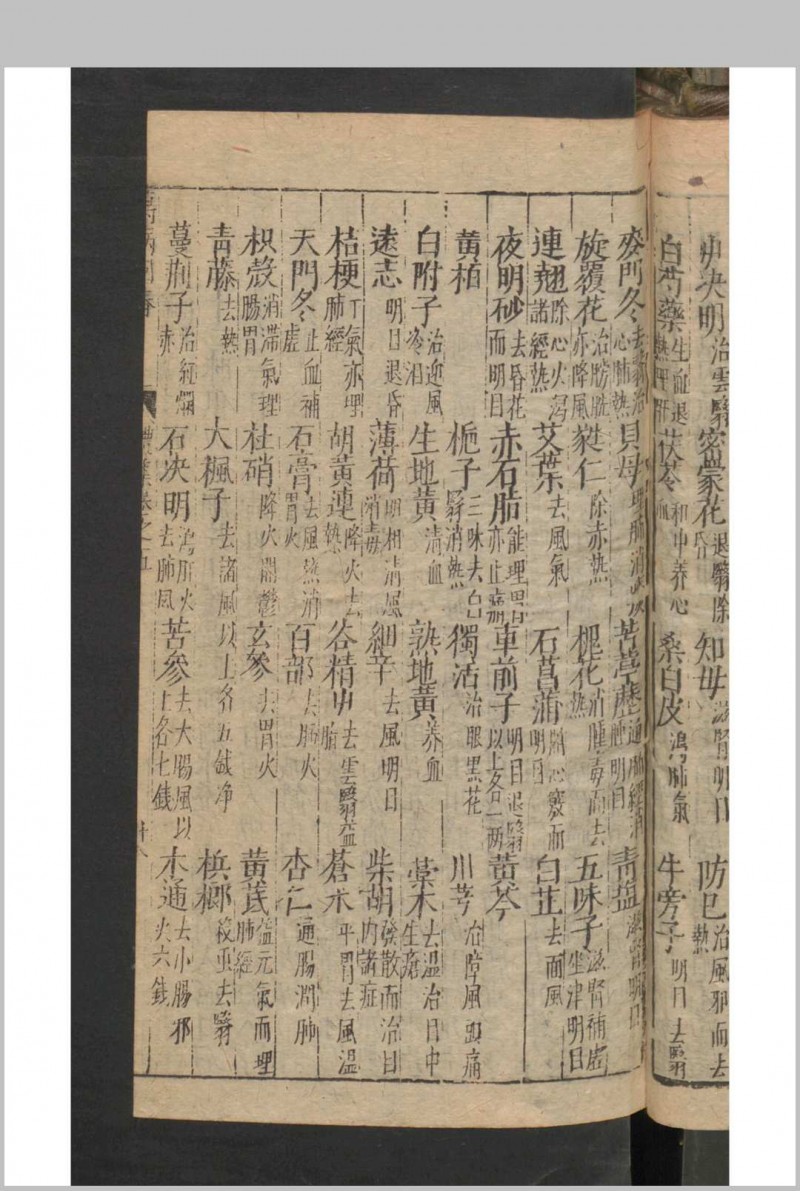 草决明治雲翳密蒙花退翳除昏知母滋腎明目防巳治風邪而去熱
白芍藥生血退熱理肝茯苓和中养心血桑白皮瀉肺氣牛旁子明目去翳
麥門冬心肺熱貝母苦葶藶青塩滋腎明目
旋覆花治膀胱亦降風蕤仁除赤熱槐花消腫毒而去熱五味子滋腎補虛生津明目
連翹除心火瀉諸經熱艾葉去風氣石菖蒲開心竅而明目白芷去面風
夜明砂去昏花而明目赤石脂能理胃亦止痛車前子明目退翳以上各一两黄芩
黄栢梔子三味去白翳消熱獨活治眼黑花川芎治障風頭痛
白附子治迎風冷泪生地黄清血熟地黄养血藁本去温治目中生瘡
遠志明目退昏薄荷明相清風消毒細辛去風明目柴胡發散而治目内諸症
桔梗下氣亦理肺經胡黄連降火去熱谷精草去雲翳蒼术平胃去風温
天門冬止血補虛石膏去風熱消胃火百部去肺火杏仁通腸潤肺
枳殻消滯氣理腸胃朴硝降火開鬱玄參去胃火黄芪温元氣而理肺經
青藤去熱大楓子去諸風以上各五錢净檳榔殺虫去翳
蔓荆子治紅爛赤石决明瀉肝火去肺風苦參去大腸風以上各七錢木通去小腸邪火六錢
萬病回春